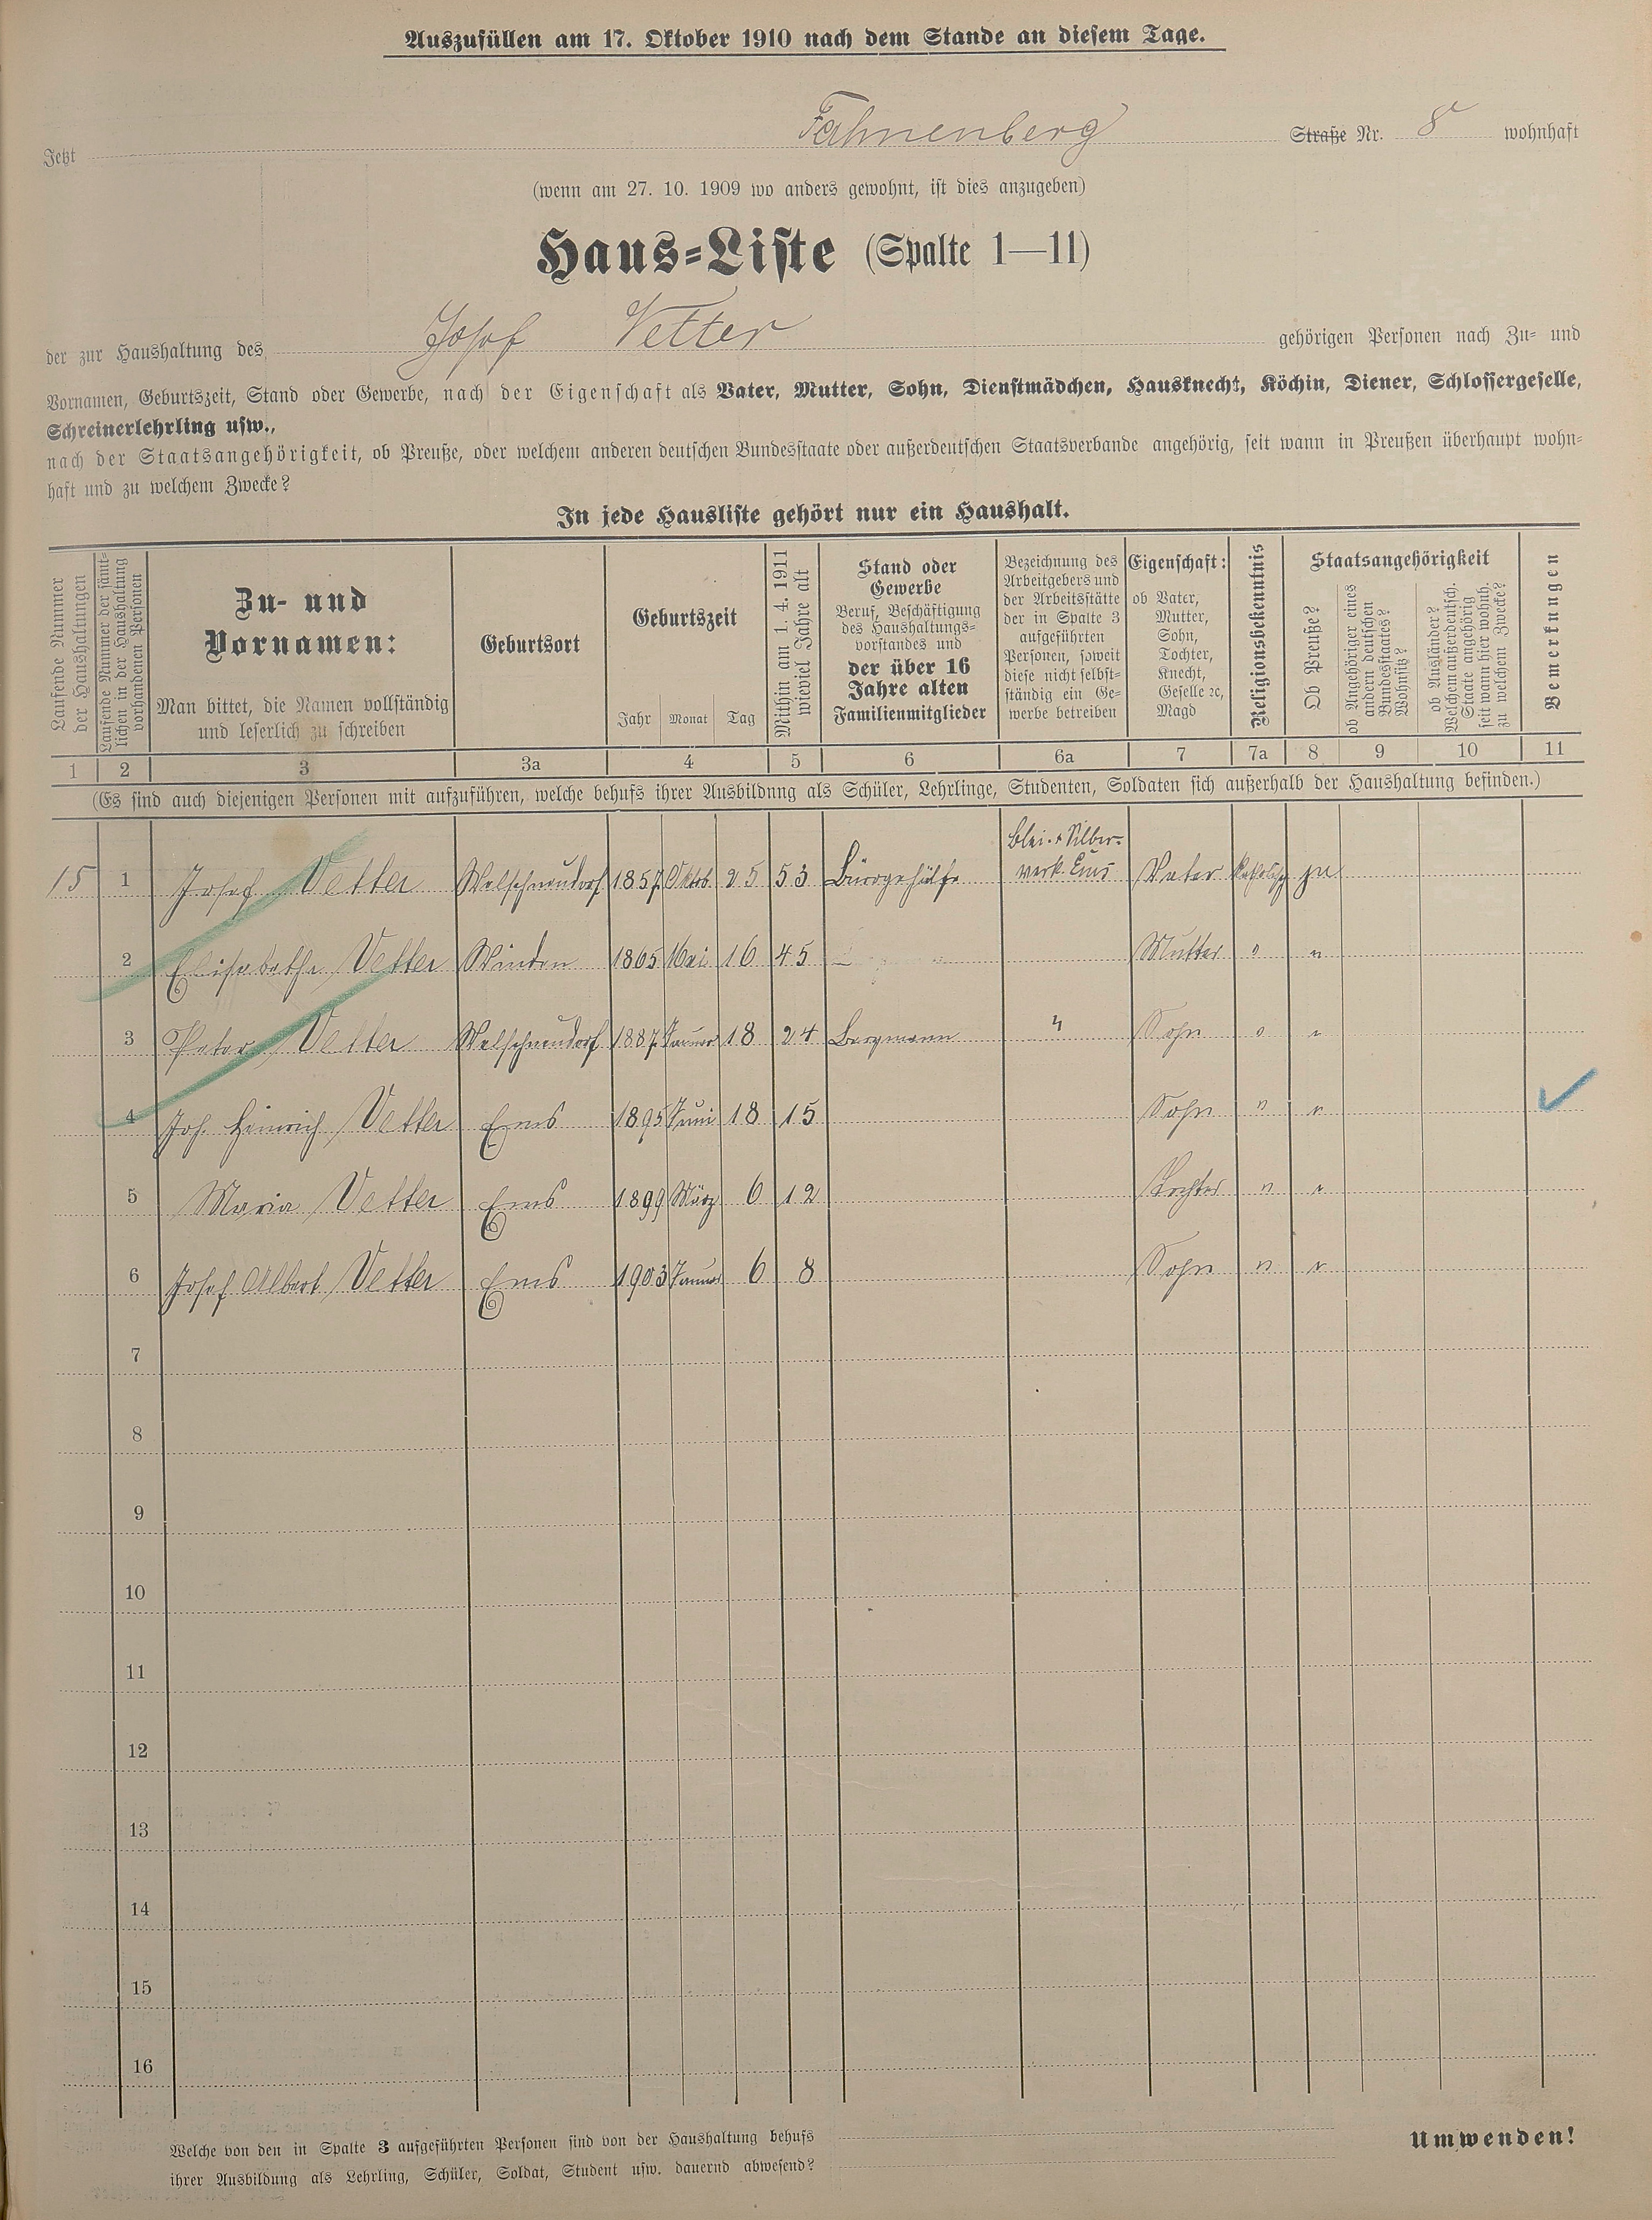 Auszufüllen am 17. Oktober 1910 nach dem Stande an diesem Tage.
Jetzt Fahnenberg Straße Nr. 8 wohnhaft
(wenn am 27. 10. 1909 wo anders gewohnt, ist dies anzugeben)
Haus-Liste (Spalte 1—11)
der zur Haushaltung des Josef Vetter gehörigen Personen nach Zu- und
Vornamen, Geburtszeit, Stand oder Gewerbe, nach der Eigenschaft als Vater, Mutter, Sohn, Dienstmädchen, Hausknecht, Köchin, Diener, Schlossergeselle,
Schreinerlehrling usw.,
nach der Staatsangehörigkeit, ob Preuße, oder welchem anderen deutschen Bundesstaate oder außerdeutschen Staatsverbande angehörig, seit wann in Preußen überhaupt wohn-
haft und zu welchem Zwecke?
In jede Hausliste gehört nur ein Haushalt.
Laufende Nummer
der Haushaltungen
Laufende Nummer der sämt-
lichen in der Haushaltung
vorhandenen Personen
Zu- und
Vornamen:
Man bittet, die Namen vollständig
und leserlich zu schreiben
Geburtsort
Geburtszeit
Jahr Monat Tag
Mithin am 1. 4. 1911
wieviel Jahre alt
Stand oder
Gewerbe
Beruf, Beschäftigung
des Haushaltungs-
vorstandes und
der über 16
Jahre alten
Familienmitglieder
Bezeichnung des
Arbeitgebers und
der Arbeitsstätte
der in Spalte 3
aufgeführten
Personen, soweit
diese nicht selbst-
ständig ein Ge-
werbe betreiben
Eigenschaft:
ob Vater,
Mutter,
Sohn,
Tochter,
Knecht,
Geselle ꝛc,
Magd
Religionsbekenntnis
Staatsangehörigkeit
Ob Preuße?
ob Angehöriger eines
andern deutschen
Bundesstaates?
Wohnsitz?
ob Ausländer?
Welchem außerdeutsch.
Staate angehörig
seit wann hier wohnh.
zu welchem Zwecke?
Bemerkungen
1 2 3 3a 4 5 6 6a 7 7a 8 9 10 11
(Es sind auch diejenigen Personen mit aufzuführen, welche behufs ihrer Ausbildung als Schüler, Lehrlinge, Studenten, Soldaten sich außerhalb der Haushaltung befinden.)
Blei- & Silber-
15 1 Josef Vetter Welschneudorf 1857 Oktob. 25 53 Bürogehülfe werk Ems Vater Katholisch
2 Elisabetha Vetter Winden 1865 Mai 16 45 Mutter " "
3 Peter Vetter Welschneudorf 1887 Januar 18 24 Bergmann " Sohn " "
4 Joh. Heinrich Vetter Ems 1895 Juni 18 15 Sohn " "
5 Maria Vetter Ems 1899 März 6 12 Tochter " "
6 Josef Albert Vetter Ems 1903 Januar 6 8 Sohn " "
7
8
9
10
11
12
13
14
15
16
Welche von den in Spalte 3 aufgeführten Personen sind von der Haushaltung behufs
ihrer Ausbildung als Lehrling, Schüler, Soldat, Student usw. dauernd abwesend?
Umwenden!